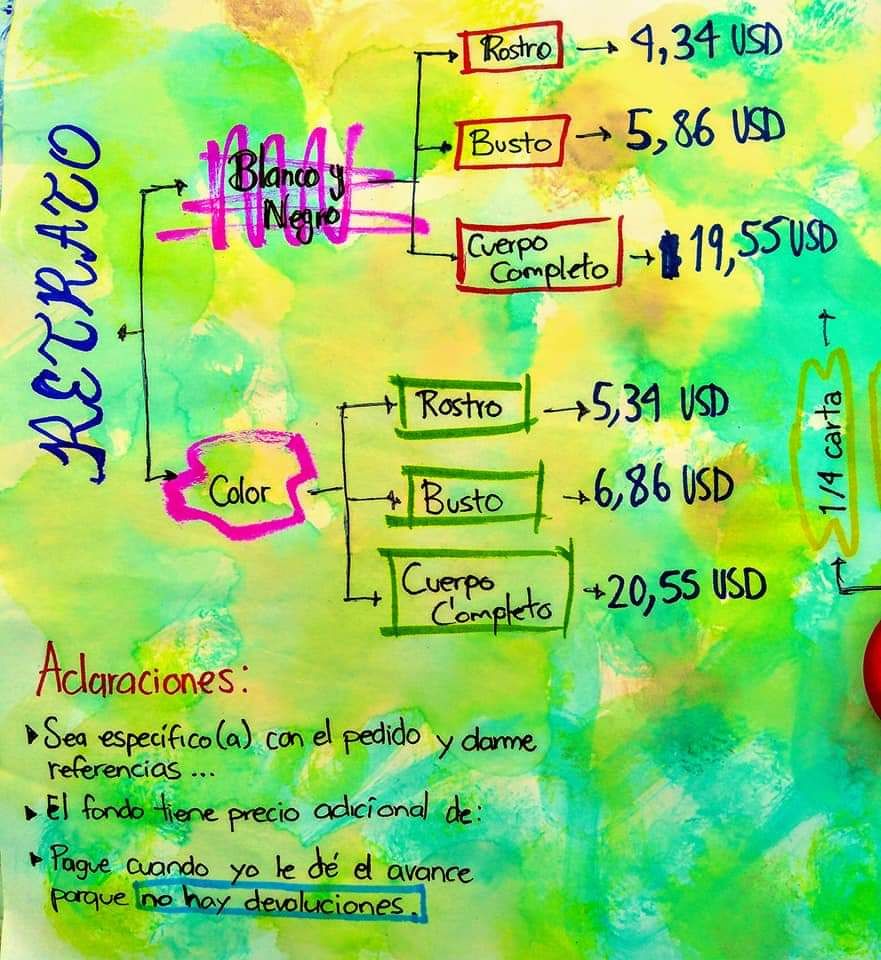 RETRATO
Blanco y
Negro
Rostro → 4,34 USD
Busto → 5,86 USD
Cuerpo
Completo → $19,55 USD
Color
Rostro → 5,34 USD
Busto → 6,86 USD
Cuerpo
Completo → 20,55 USD
1/4 carta
Aclaraciones:
▸ Sea específico(a) con el pedido y darme
referencias...
▸ El fondo tiene precio adicional de:
▸ Pague cuando yo le dé el avance
porque no hay devoluciones.